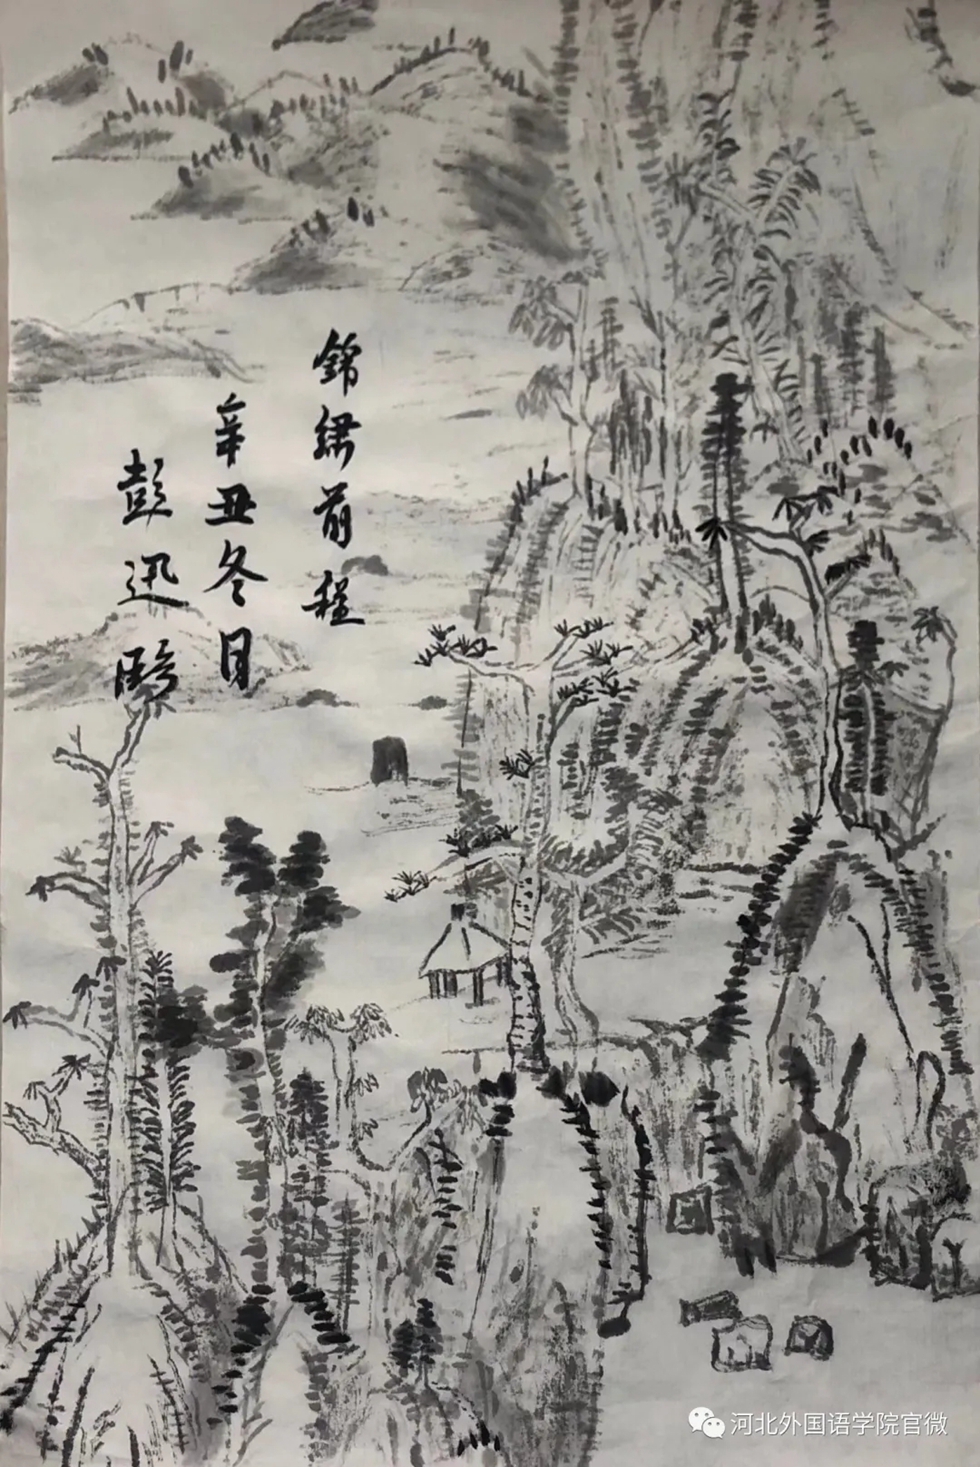 锦绣前程
辛丑冬月
彭迅
河北外国语学院官微